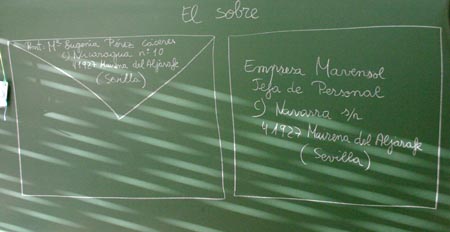 El sobre
Rmt. Mª Eugenia Pérez Cáceres
C/ Nicaragua nº 10
41927 Mairena del Aljarafe
(Sevilla)
Empresa Mavensol
Jefa de Personal
C/ Navarra s/n
41927 Mairena del Aljarafe
(Sevilla)